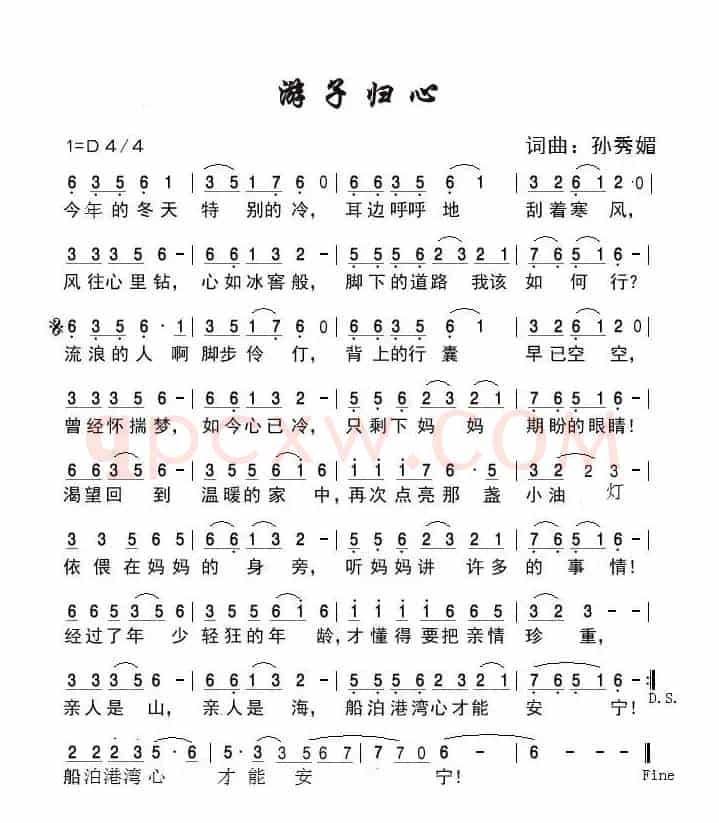 游子归心
1=D 4/4 词曲：孙秀媚
6 3 5 6 1 | 3 5 1 7 6 0 | 6 6 3 5 6 1 | 3 2 6 1 2·0 |
今年的冬天 特 别的冷，耳边呼呼地 刮着寒 风，
3 3 3 5 6 - | 6 6 1 3 2 - | 5 5 5 6 2 3 3 2 1 | 7 6 5 1 6 - |
风往心里钻，心如冰窖般，脚下的道路 我该 如 何 行？
6 3 5 6·1 | 3 5 1 7 6 0 | 6 6 3 5 6 1 | 3 2 6 1 2 0 |
流浪的人 啊 脚步 伶 仃，背上的行囊 早已空 空，
3 3 3 5 6 - | 6 6 1 3 2 - | 5 5 6 2 3 3 2 1 | 7 6 5 1 6 - |
曾经怀揣梦，如今心已冷，只剩下妈 妈 期盼的眼睛！
qpcxw.com
6 6 3 3 5 6 - | 6 6 1 3 2 - | 1 1 1 1 7 6 7·5 | 3 2 2 3 - |
渴望回 到 温暖的家 中，再次点亮那 盏 小油 灯
3 3 5 6 5 | 6 6 1 3 2 - | 5 5 5 6 2 3 2 1 | 7 6 5 1 6 - |
依偎在妈妈的 身 旁，听妈妈讲 许多 的 事 情！
6 6 5 3 5 6 - | 6 6 1 3 2 - | 1 1 1 1 7 6 7 5 | 3 2 3 - - |
经过了年 少 轻狂的年 龄，才懂得要把亲情 珍 重，
3 3 3 5 6 - | 6 6 1 3 2 - | 5 5 5 6 2 3 2 2 1 | 7 6 5 1 6 - :‖
亲人是 山，亲人是 海，船泊港湾心才能 安 宁！ D.S.
2 2 2 2 3 5·6 | 5·3 3 3 5 6 6 7 | 7 7 0 6 - | 6 - - - |
船泊港湾心 才 能 安 宁！ Fine